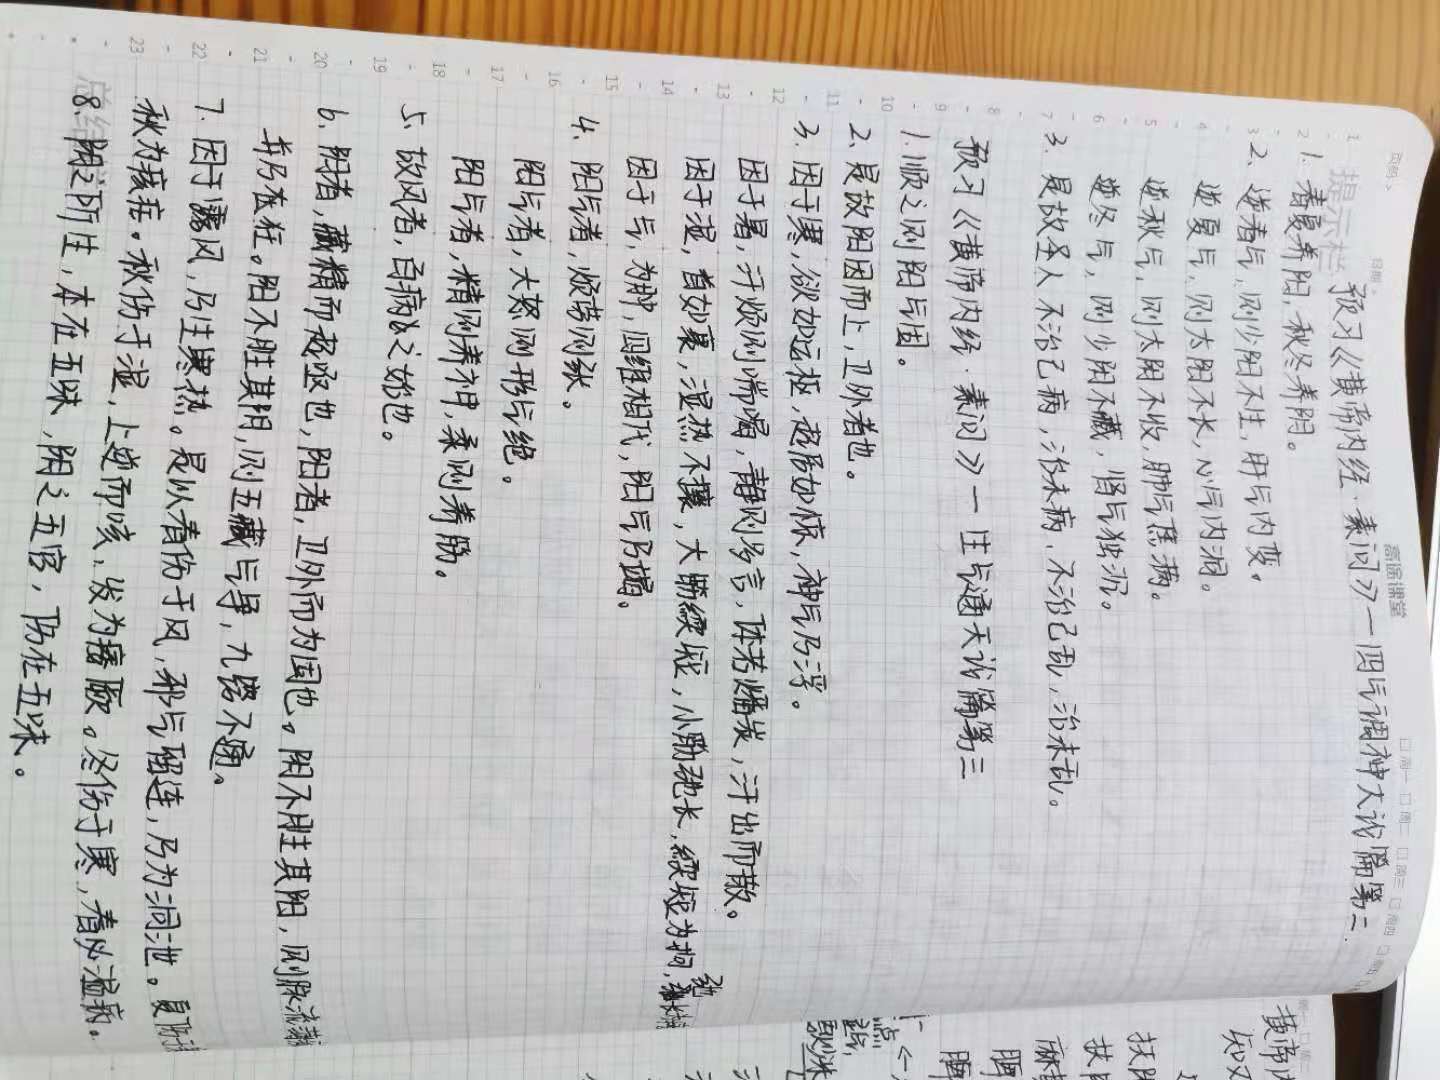 提示栏
高途课堂
周一 周二 周三 周四 周五
预习《黄帝内经·素问》一四气调神大论篇第二
1. 春夏养阳，秋冬养阴。
2. 逆春气，则少阳不生，肝气内变。
逆夏气，则太阳不长，心气内洞。
逆秋气，则太阴不收，肺气焦满。
逆冬气，则少阴不藏，肾气独沉。
3. 是故圣人不治已病，治未病，不治已乱，治未乱。
预习《黄帝内经·素问》一生气通天论篇第三
1. 顺之则阳气固。
2. 是故阳因而上，卫外者也。
3. 因于寒，欲如运枢，起居如惊，神气乃浮。
因于暑，汗烦则喘喝，静则多言，体若燔炭，汗出而散。
因于湿，首如裹，湿热不攘，大筋緛短，小筋弛长，緛短为拘，
因于气，为肿，四维相代，阳气乃竭。
4. 阳气者，烦劳则张。
阳气者，大怒则形气绝。
阳气者，精则养神，柔则养筋。
5. 故风者，百病之始也。
6. 阴者，藏精而起亟也，阳者，卫外而为固也。阴不胜其阳，则脉流薄
并乃在狂。阳不胜其阴，则五藏气争，九窍不通。
7. 因于露风，乃生寒热。是以春伤于风，邪气留连，乃为洞泄。夏伤
秋为痎疟。秋伤于湿，上逆而咳、发为痿厥。冬伤于寒，春必温病。
8. 阴之所生，本在五味，阴之五宫，伤在五味。
黄帝内
知又
扶阳